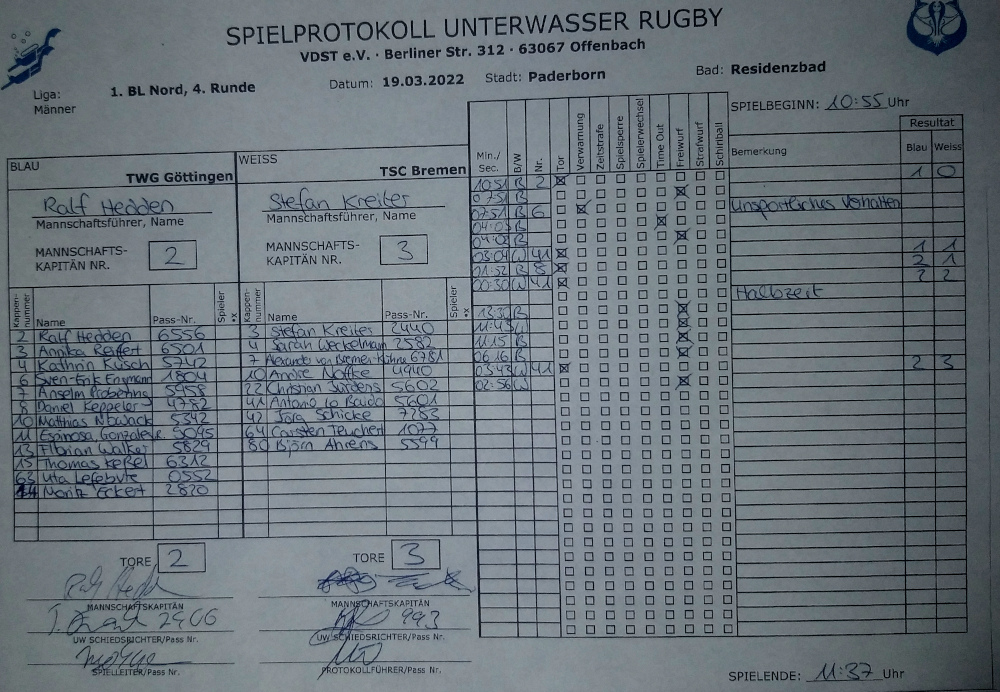 SPIELPROTOKOLL UNTERWASSER RUGBY
VDST e.V. · Berliner Str. 312 · 63067 Offenbach
Liga: Männer 1. BL Nord, 4. Runde Datum: 19.03.2022 Stadt: Paderborn Bad: Residenzbad
SPIELBEGINN: 10:55 Uhr
BLAU TWG Göttingen
Ralf Hedden
Mannschaftsführer, Name
MANNSCHAFTS-
KAPITÄN NR. 2
WEISS TSC Bremen
Stefan Kreiter
Mannschaftsführer, Name
MANNSCHAFTS-
KAPITÄN NR. 3
Kappen-nummer Name Pass-Nr. Spieler *x
2 Ralf Hedden 6556
3 Annika Reiffert 6501
4 Kathrin Küsch 5742
6 Sven-Erik 1804
7 Anselm 5958
8 Daniel Keppeler 4752
10 Matthias Nowack 5342
11 Espinosa Gonzales 5045
13 Florian Walker 5829
15 Thomas Keßel 6312
63 Uta Lefebvre 0552
Moritz Eckert 2820
Kappen-nummer Name Pass-Nr. Spieler *x
3 Stefan Kreiter 2440
4 Sarah Werkelmann 2582
7 Alexander von Bremen-Kühne 6781
10 André Noffke 4940
22 Christian Jürdens 5602
41 Antonio Lo Baido 5601
42 Jörg Schicke 7283
64 Carsten Teuchert 1077
80 Björn Ahrens 5599
Min./Sec. B/W Nr. Tor Verwarnung Zeitstrafe Spielsperre Spielerwechsel Time Out Freiwurf Strafwurf Schirriball Bemerkung Resultat Blau Weiss
10:51 B 2 1 0
07:51 B
07:51 B 6 Unsportliches Verhalten
04:03 B
04:02 B
03:04 W 41 1 1
01:52 B 8 2 1
00:30 W 41 2 2
Halbzeit
13:30 B
11:43 W
11:15 B
06:16 B
03:43 W 41 2 3
02:56 W
TORE 2
MANNSCHAFTSKAPITÄN
2966
UW SCHIEDSRICHTER/Pass Nr.
SPIELLEITER/Pass Nr.
TORE 3
MANNSCHAFTSKAPITÄN
993
UW SCHIEDSRICHTER/Pass Nr.
PROTOKOLLFÜHRER/Pass Nr.
SPIELENDE: 11:37 Uhr